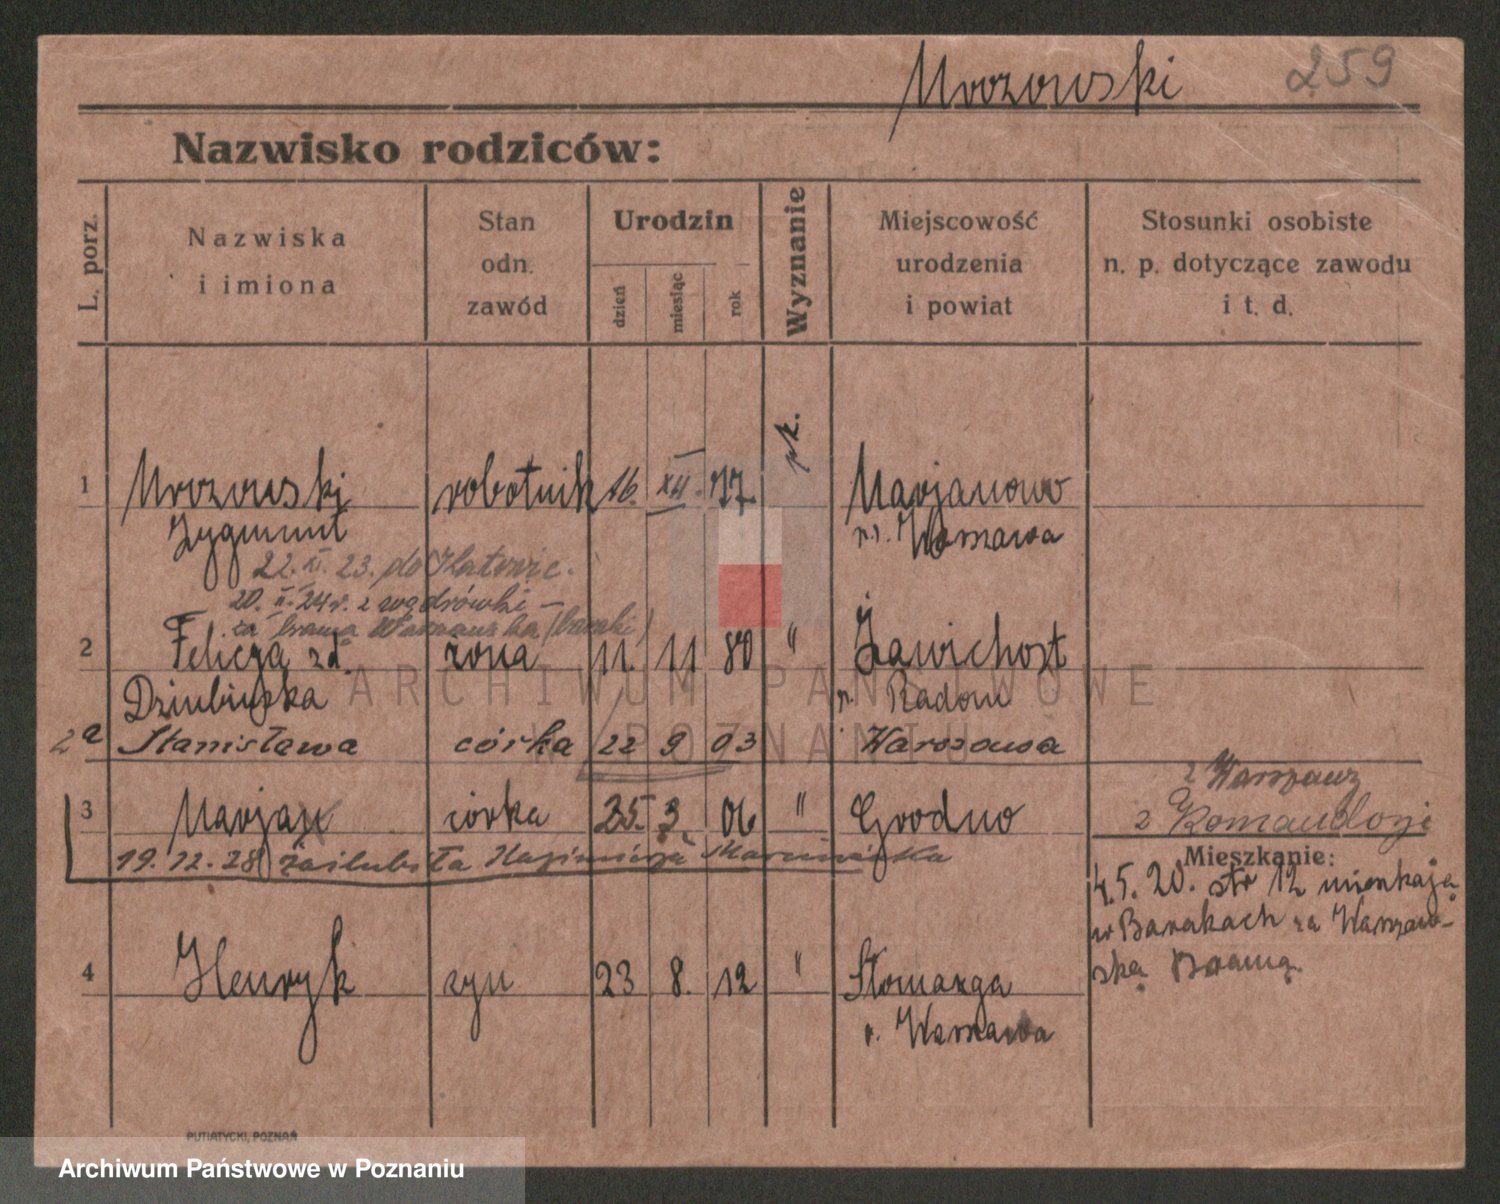 Mrozowski 259
Nazwisko rodziców:
L. porz.
Nazwiska
i imiona
Stan
odn.
zawód
Urodzin
dzień
miesiąc
rok
Wyznanie
Miejscowość
urodzenia
i powiat
Stosunki osobiste
n. p. dotyczące zawodu
i t. d.
rk.
1 Mrozowski robotnik 16. XII. 77. Marjanowo
Zygmunt Warszawa
22. 23. do Katowic.
20. II. 24 r. z wędrówki —
za bramą Warszawska (baraki)
2 Felicja zd. żona 11. 11 80 " Zawichost
Dziubińska Radom
2a Stanisława córka 22 9 03 Warszawa
z Warszawy
3 Marjan córka 25. 3. 06 " Grodno
19.12.28 zaślubiła Kazimierza
Mieszkanie:
4.5.20. str 12 mieszkają
w Barakach za Warszaw-
ską Bramą.
4 Henryk syn 23 8. 12 "
Warszawa
ARCHIWUM PAŃSTWOWE
W POZNANIU
PUTIATYCKI, POZNAŃ
Archiwum Państwowe w Poznaniu